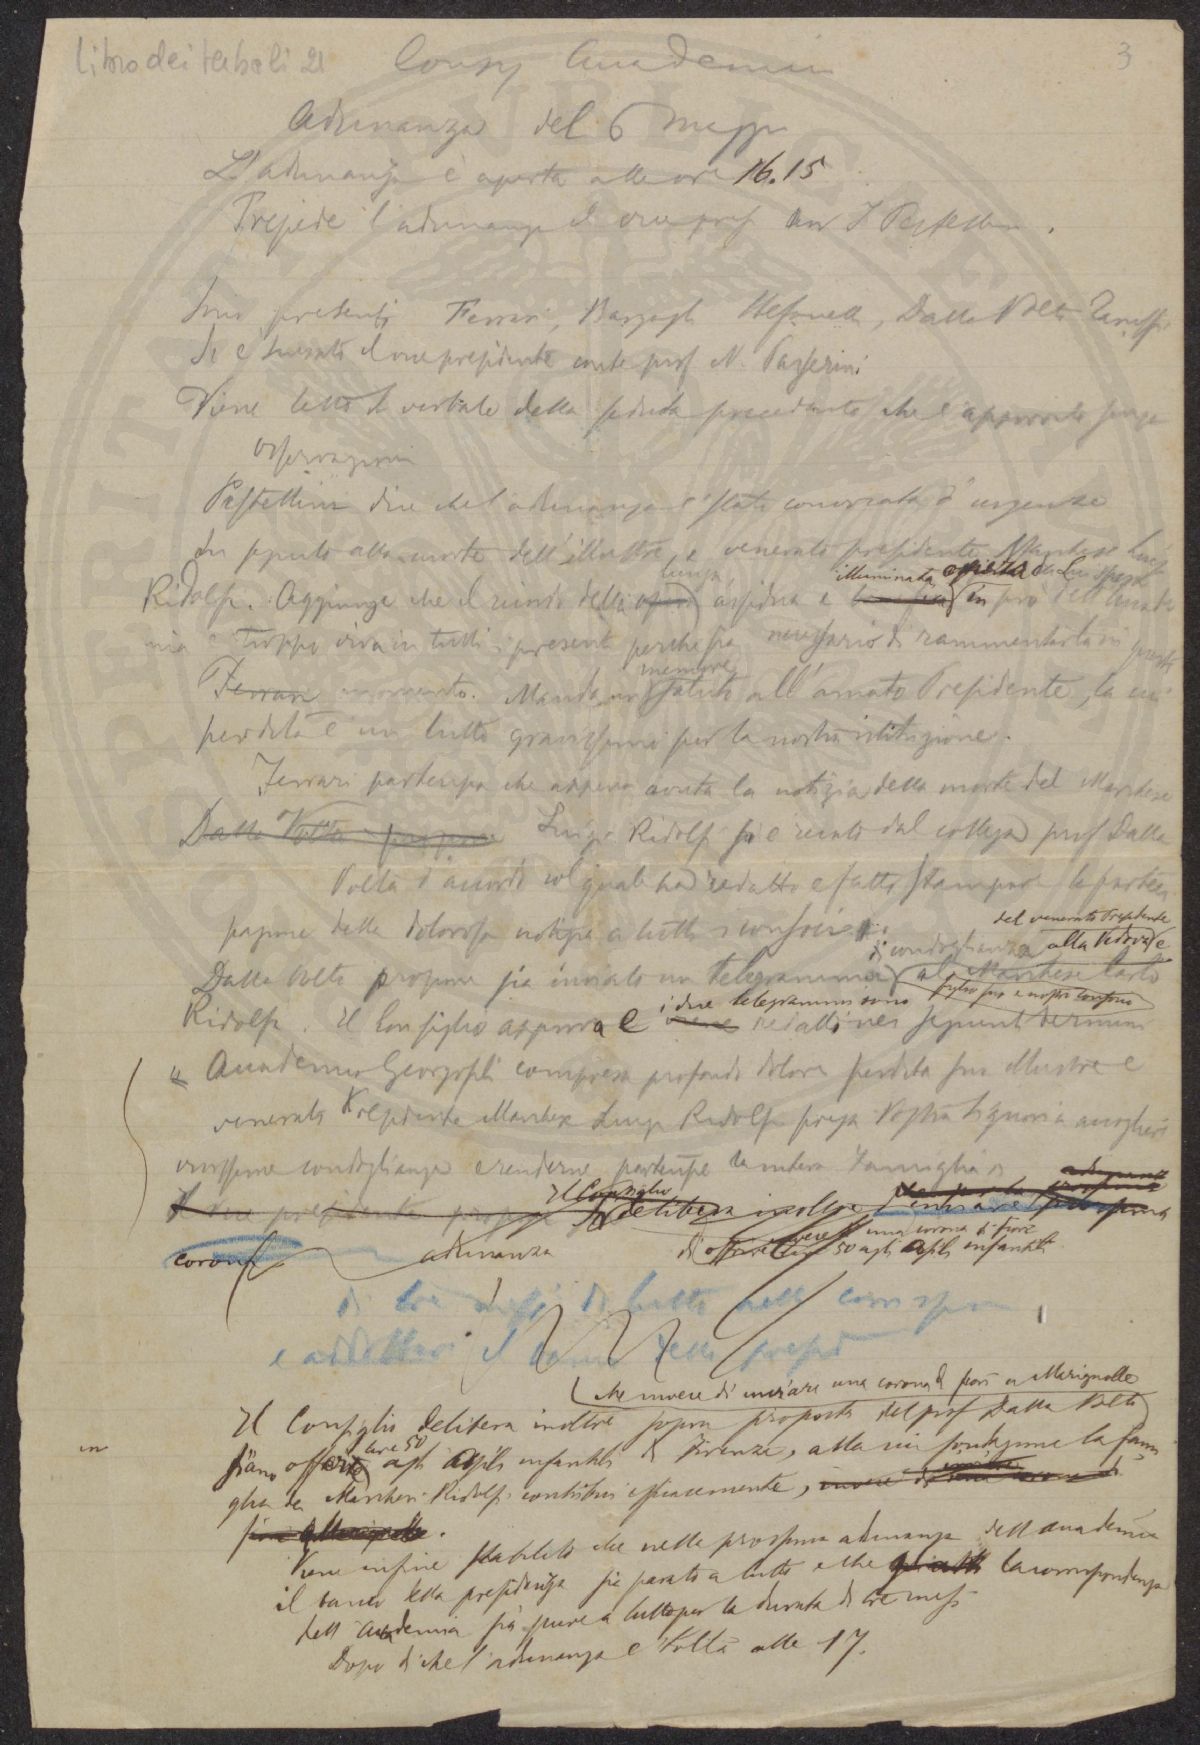 Libro dei verbali 21
3
Cons Accademia
Adunanza del 6 Magg
L'adunanza è aperta alle ore 16.15
Presiede l'adunanza il vice pres
Sono presenti Ferrari, Bargagli Stefanelli, Dalla Volta
Si è scusato il vice presidente conte prof N. Passerini
Viene letto il verbale della seduta precedente che è approvato senza
osservazioni
Pestellini dice che l'adunanza è stata convocata d'urgenza
in seguito alla morte dell'illustre e venerato presidente Marchese Luigi
Ridolfi. Aggiunge che il ricordo della lunga assidua e illuminata in pro dell'Accade
mia è troppo viva in tutti i presenti perché sia necessario di rammentarla in questo
Ferrari momento. Manda un memore saluto all'amato Presidente, la cui
perdita è un lutto gravissimo per la nostra istituzione.
Ferrari partecipa che appena avuta la notizia della morte del Marchese
Dalla Volta propone Luigi Ridolfi si è recato dal collega prof Dalla
Volta d'accordo col quale ha redatto e fatto stampare la parteci
pazione della dolorosa notizia a tutti i consoci
del venerato Presidente
di condoglianza alla Vedova e
Dalla Volta propone sia inviato un telegramma al Marchese Carlo
figlio suo e nostro consocio
i due telegrammi sono
Ridolfi. Il Consiglio approva e viene redatti nei seguenti termini
" Accademia Georgofili compresa profondo dolore perdita suo illustre e
venerato Presidente Marchese Luigi Ridolfi prega Vostra Signoria accogliere
vivissime condoglianze e renderne partecipe la intera Famiglia "
Il vice presidente propone
Il Consiglio
delibera inoltre
corona
adunanza
di offrire lire 50 agli Asili infantili
invece una corona di fiori
di tre mesi di lutto nella corrispon
e addobbare il banco della presid
che invece di inviare una corona di fiori a Marignolle
Il Consiglio delibera inoltre sopra proposta del prof Dalla Volta
in
siano offerte lire 50 agli Asili infantili di Firenze, alla cui fondazione la fami
glia dei Marchesi Ridolfi contribuì efficacemente, invece di
fiori a Marignolle.
Viene infine stabilito che nella prossima adunanza dell'Accademia
il banco della presidenza sia parato a lutto e che la corrispondenza
dell'Accademia sia pure a lutto per la durata di tre mesi
Dopo di che l'adunanza è sciolta alle 17.